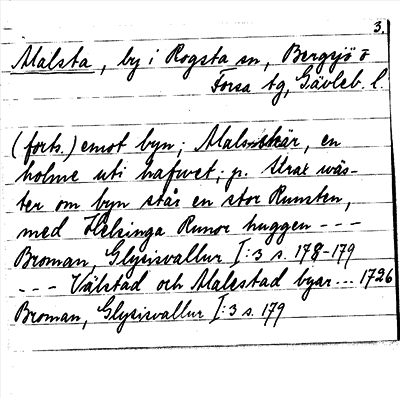 3.
Malsta, by i Rogsta sn, Bergsjö o
Forsa tg, Gävleb. l.
(forts.) emot byn; Malsskär, en
holme uti hafwet; p. Strax wäs-
ter om byn står en stor Runsten,
med Helsinga Runor huggen ---
Broman, Glysisvallur I:3 s. 178-179
--- Välstad och Malestad byar... 1726
Broman, Glysisvallur I:3 s. 179